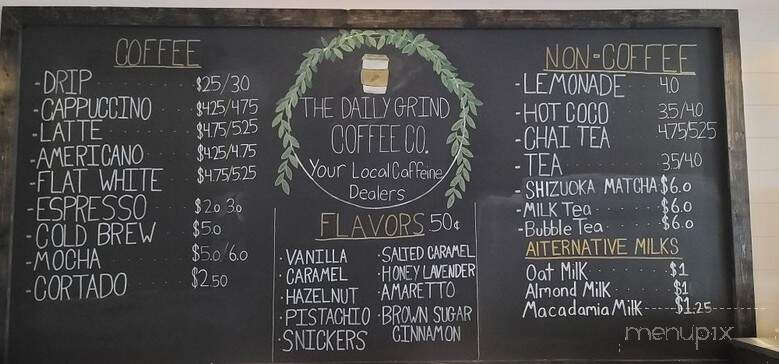 COFFEE
-DRIP $25/30
-CAPPUCCINO $4.25/4.75
-LATTE $4.75/5.25
-AMERICANO $4.25/4.75
-FLAT WHITE $4.75/5.25
-ESPRESSO $2.0 3.0
-COLD BREW $5.0
-MOCHA $5.0/6.0
-CORTADO $2.50
THE DAILY GRIND
COFFEE CO.
Your Local Caffeine
Dealers
FLAVORS 50¢
·VANILLA
·CARAMEL
·HAZELNUT
·PISTACHIO
·SNICKERS
·SALTED CARAMEL
·HONEY LAVENDER
·AMARETTO
·BROWN SUGAR
CINNAMON
NON-COFFEE
-LEMONADE 4.0
-HOT COCO 3.5/4.0
-CHAI TEA 4.75/5.25
-TEA 3.5/4.0
-SHIZUOKA MATCHA $6.0
-MILK Tea $6.0
-Bubble Tea $6.0
ALTERNATIVE MILKS
Oat Milk $1
Almond Milk $1
Macadamia Milk $1.25
menupix